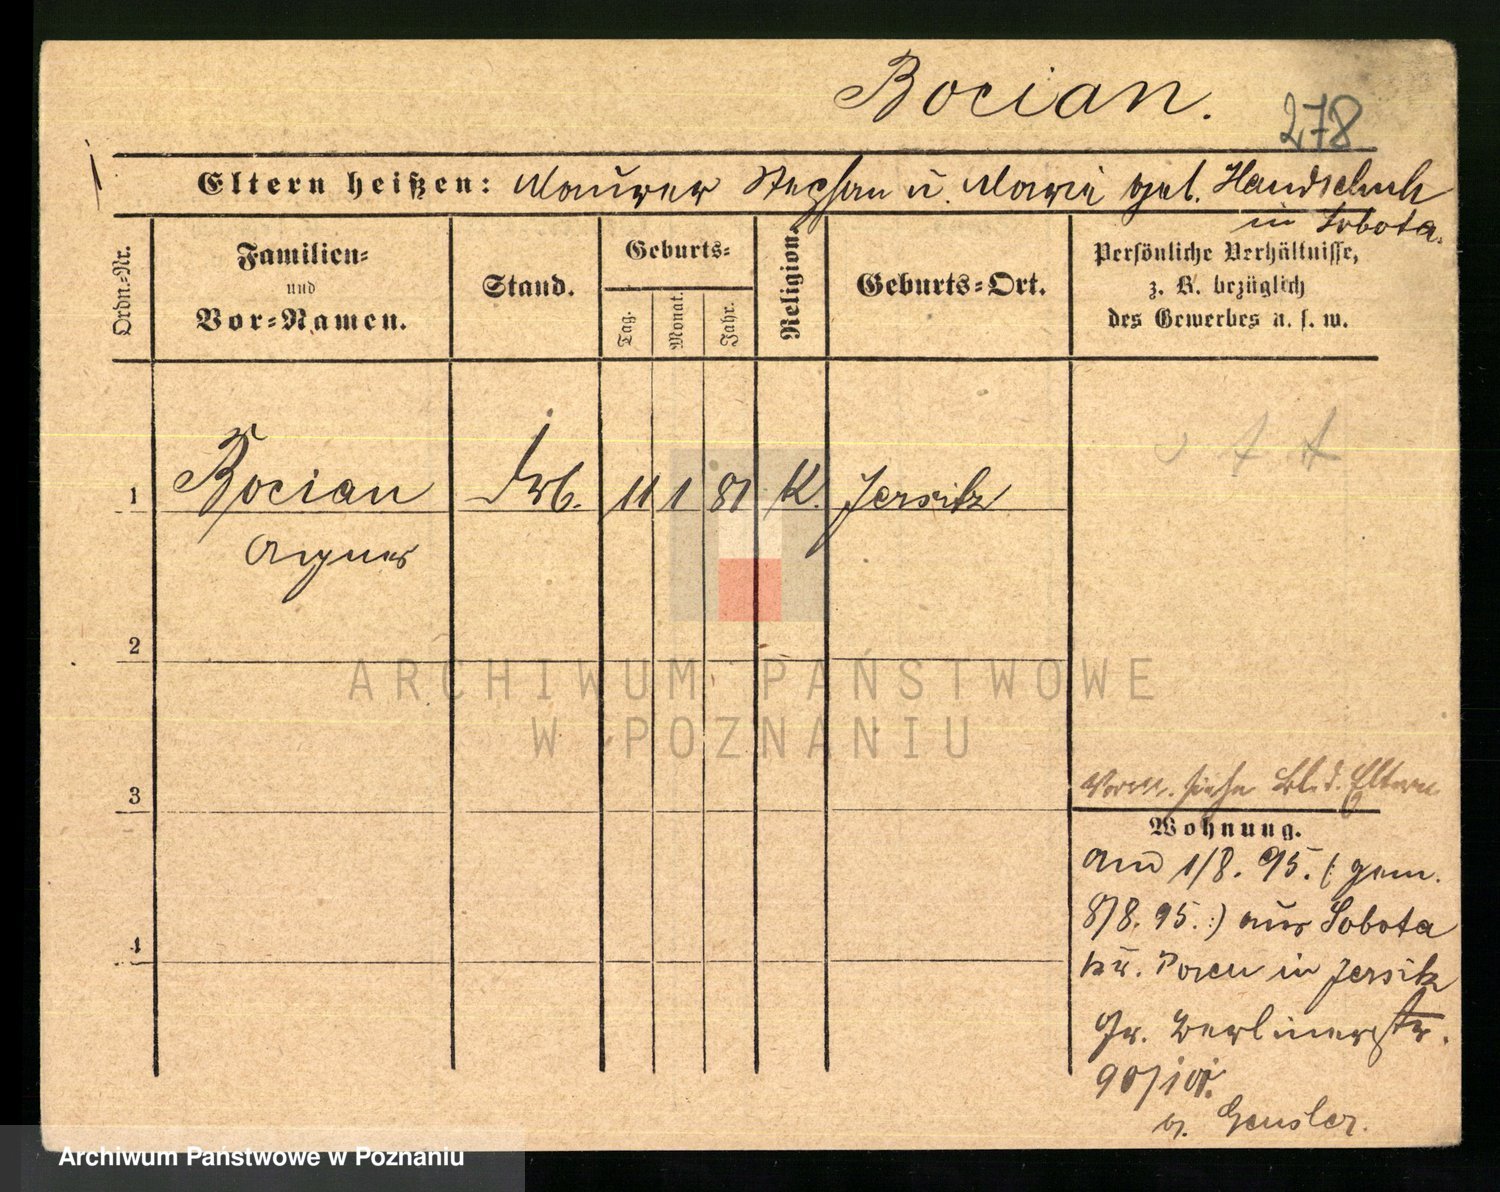 Bocian.
278
Eltern heißen: Maurer Stephan u. Maria geb. Handschuh
in Sobota.
Ordn.-Nr.
Familien-
und
Vor-Namen.
Stand.
Geburts-
Tag.
Monat.
Jahr.
Religion.
Geburts-Ort.
Persönliche Verhältnisse,
z. B. bezüglich
des Gewerbes u. s. w.
1 Bocian 11 1 81 K. Jersitz
Agnes
2
3
4
siehe Bl. d. Eltern
Wohnung.
am 1/8. 95. (: gem.
8/8. 95. :) aus Sobota
Kr. Posen in Jersitz
Gr. Berlinerstr.
90/101.
b. Gensler.
ARCHIWUM PAŃSTWOWE
W POZNANIU
Archiwum Państwowe w Poznaniu